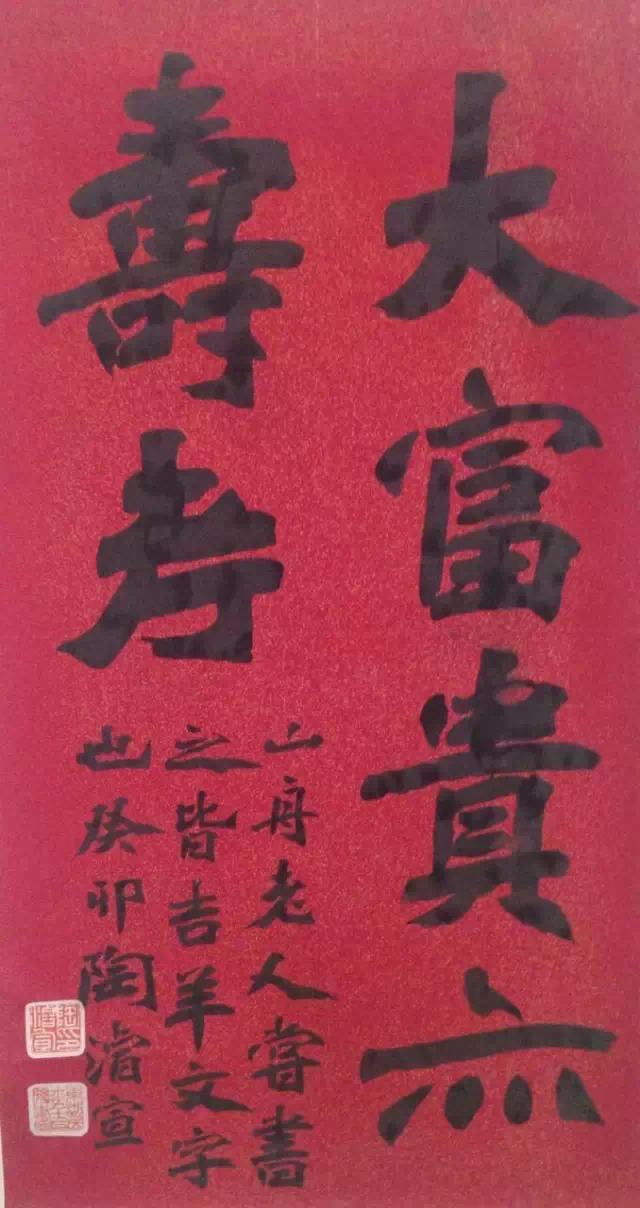 大富貴亦
壽考
山舟老人嘗書
之皆吉羊文字
也癸卯陶濬宣